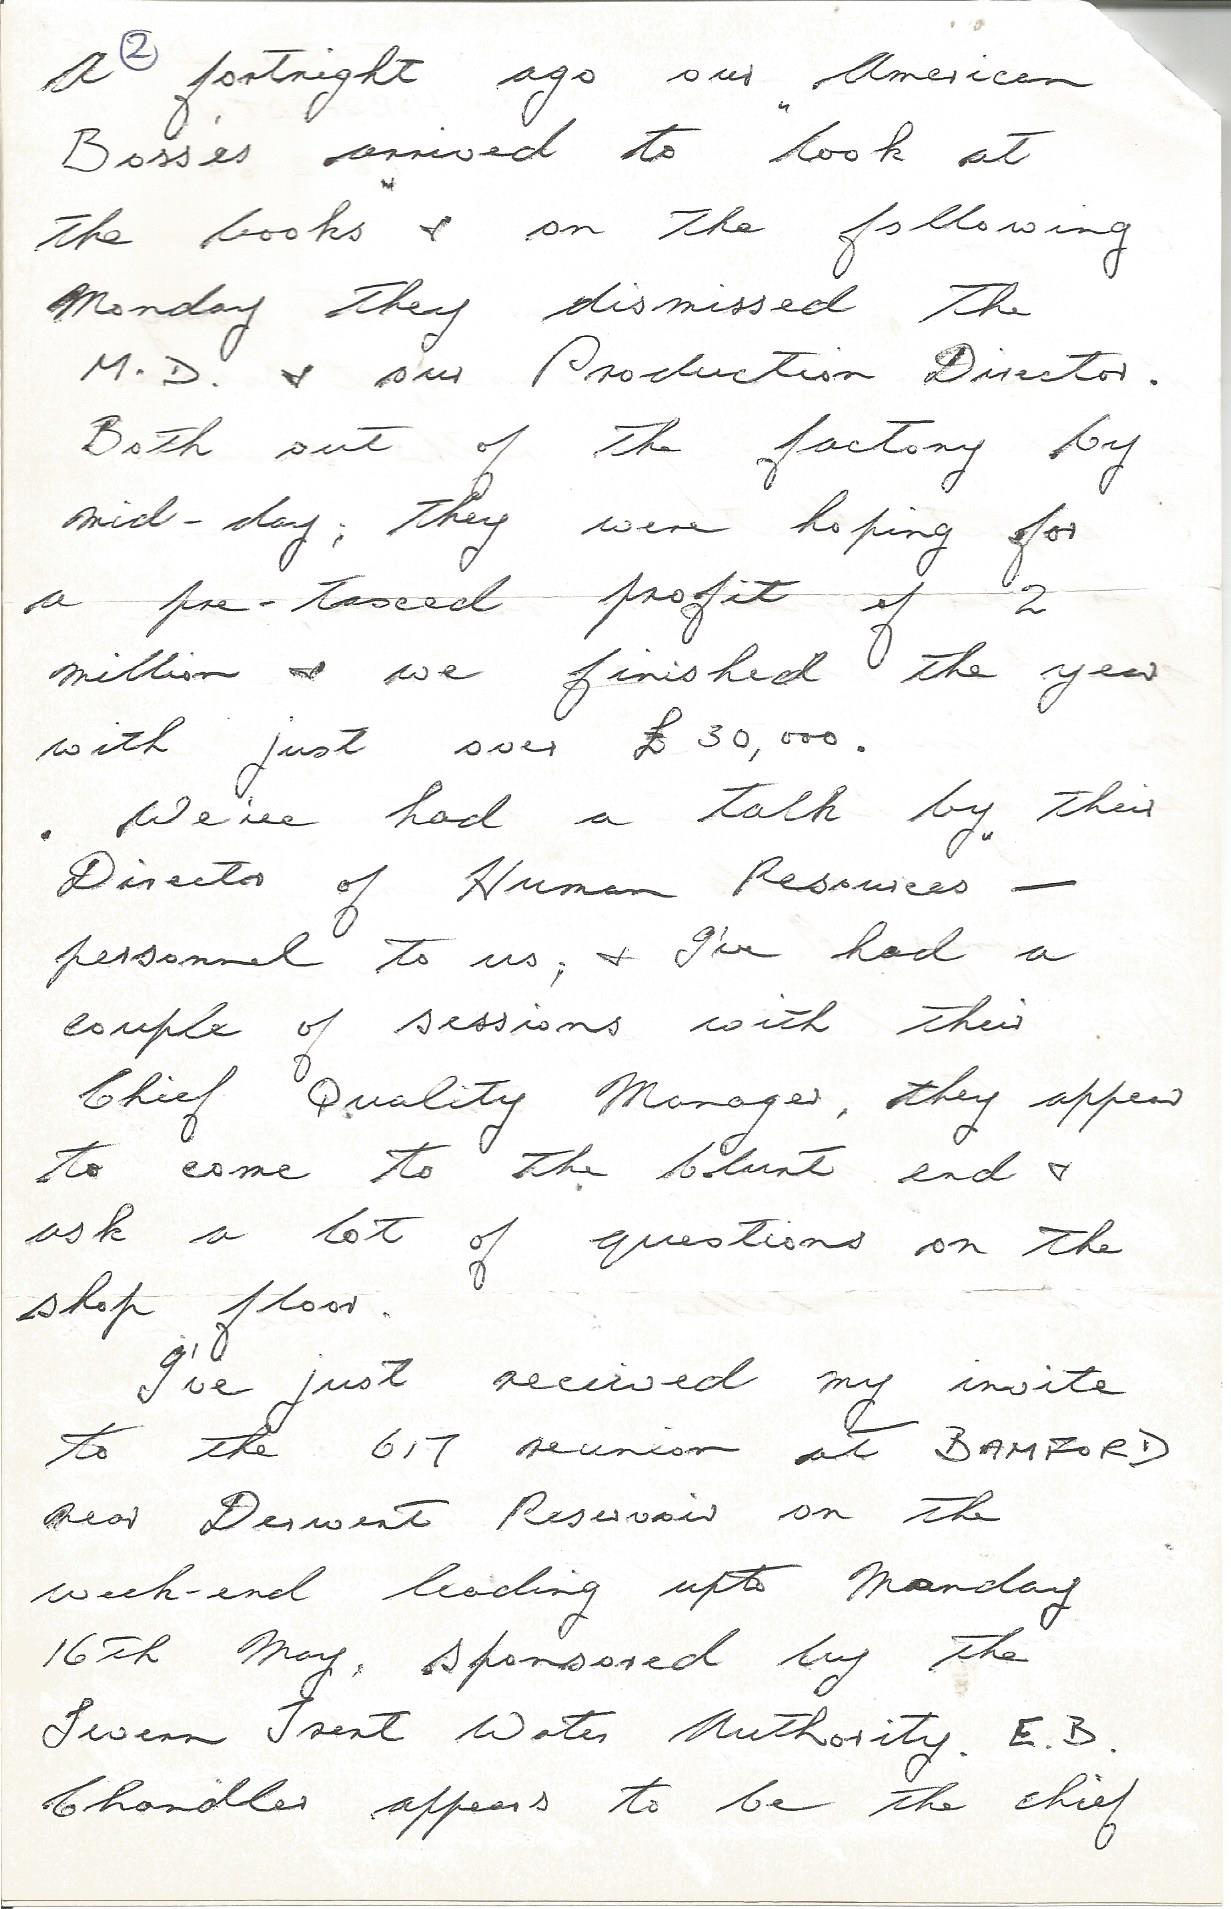 ②
A fortnight ago our American
Bosses arrived to "look at
the books" & on the following
Monday they dismissed the
M.D. & our Production Director.
Both out of the factory by
mid-day; they were hoping for
a pre-taxed profit of 2
million & we finished the year
with just over £30,000.
. We've had a talk by their
Director of "Human Resources —
personnel to us; & I've had a
couple of sessions with their
Chief Quality Manager, they appear
to come to the blunt end &
ask a lot of questions on the
shop floor.
I've just recieved my invite
to the 617 reunion at BAMFORD
near Derwent Reservoir on the
week-end leading upto Monday
16th May, sponsored by the
Severn Trent Water Authority. E.B.
Chandler appears to be the chief